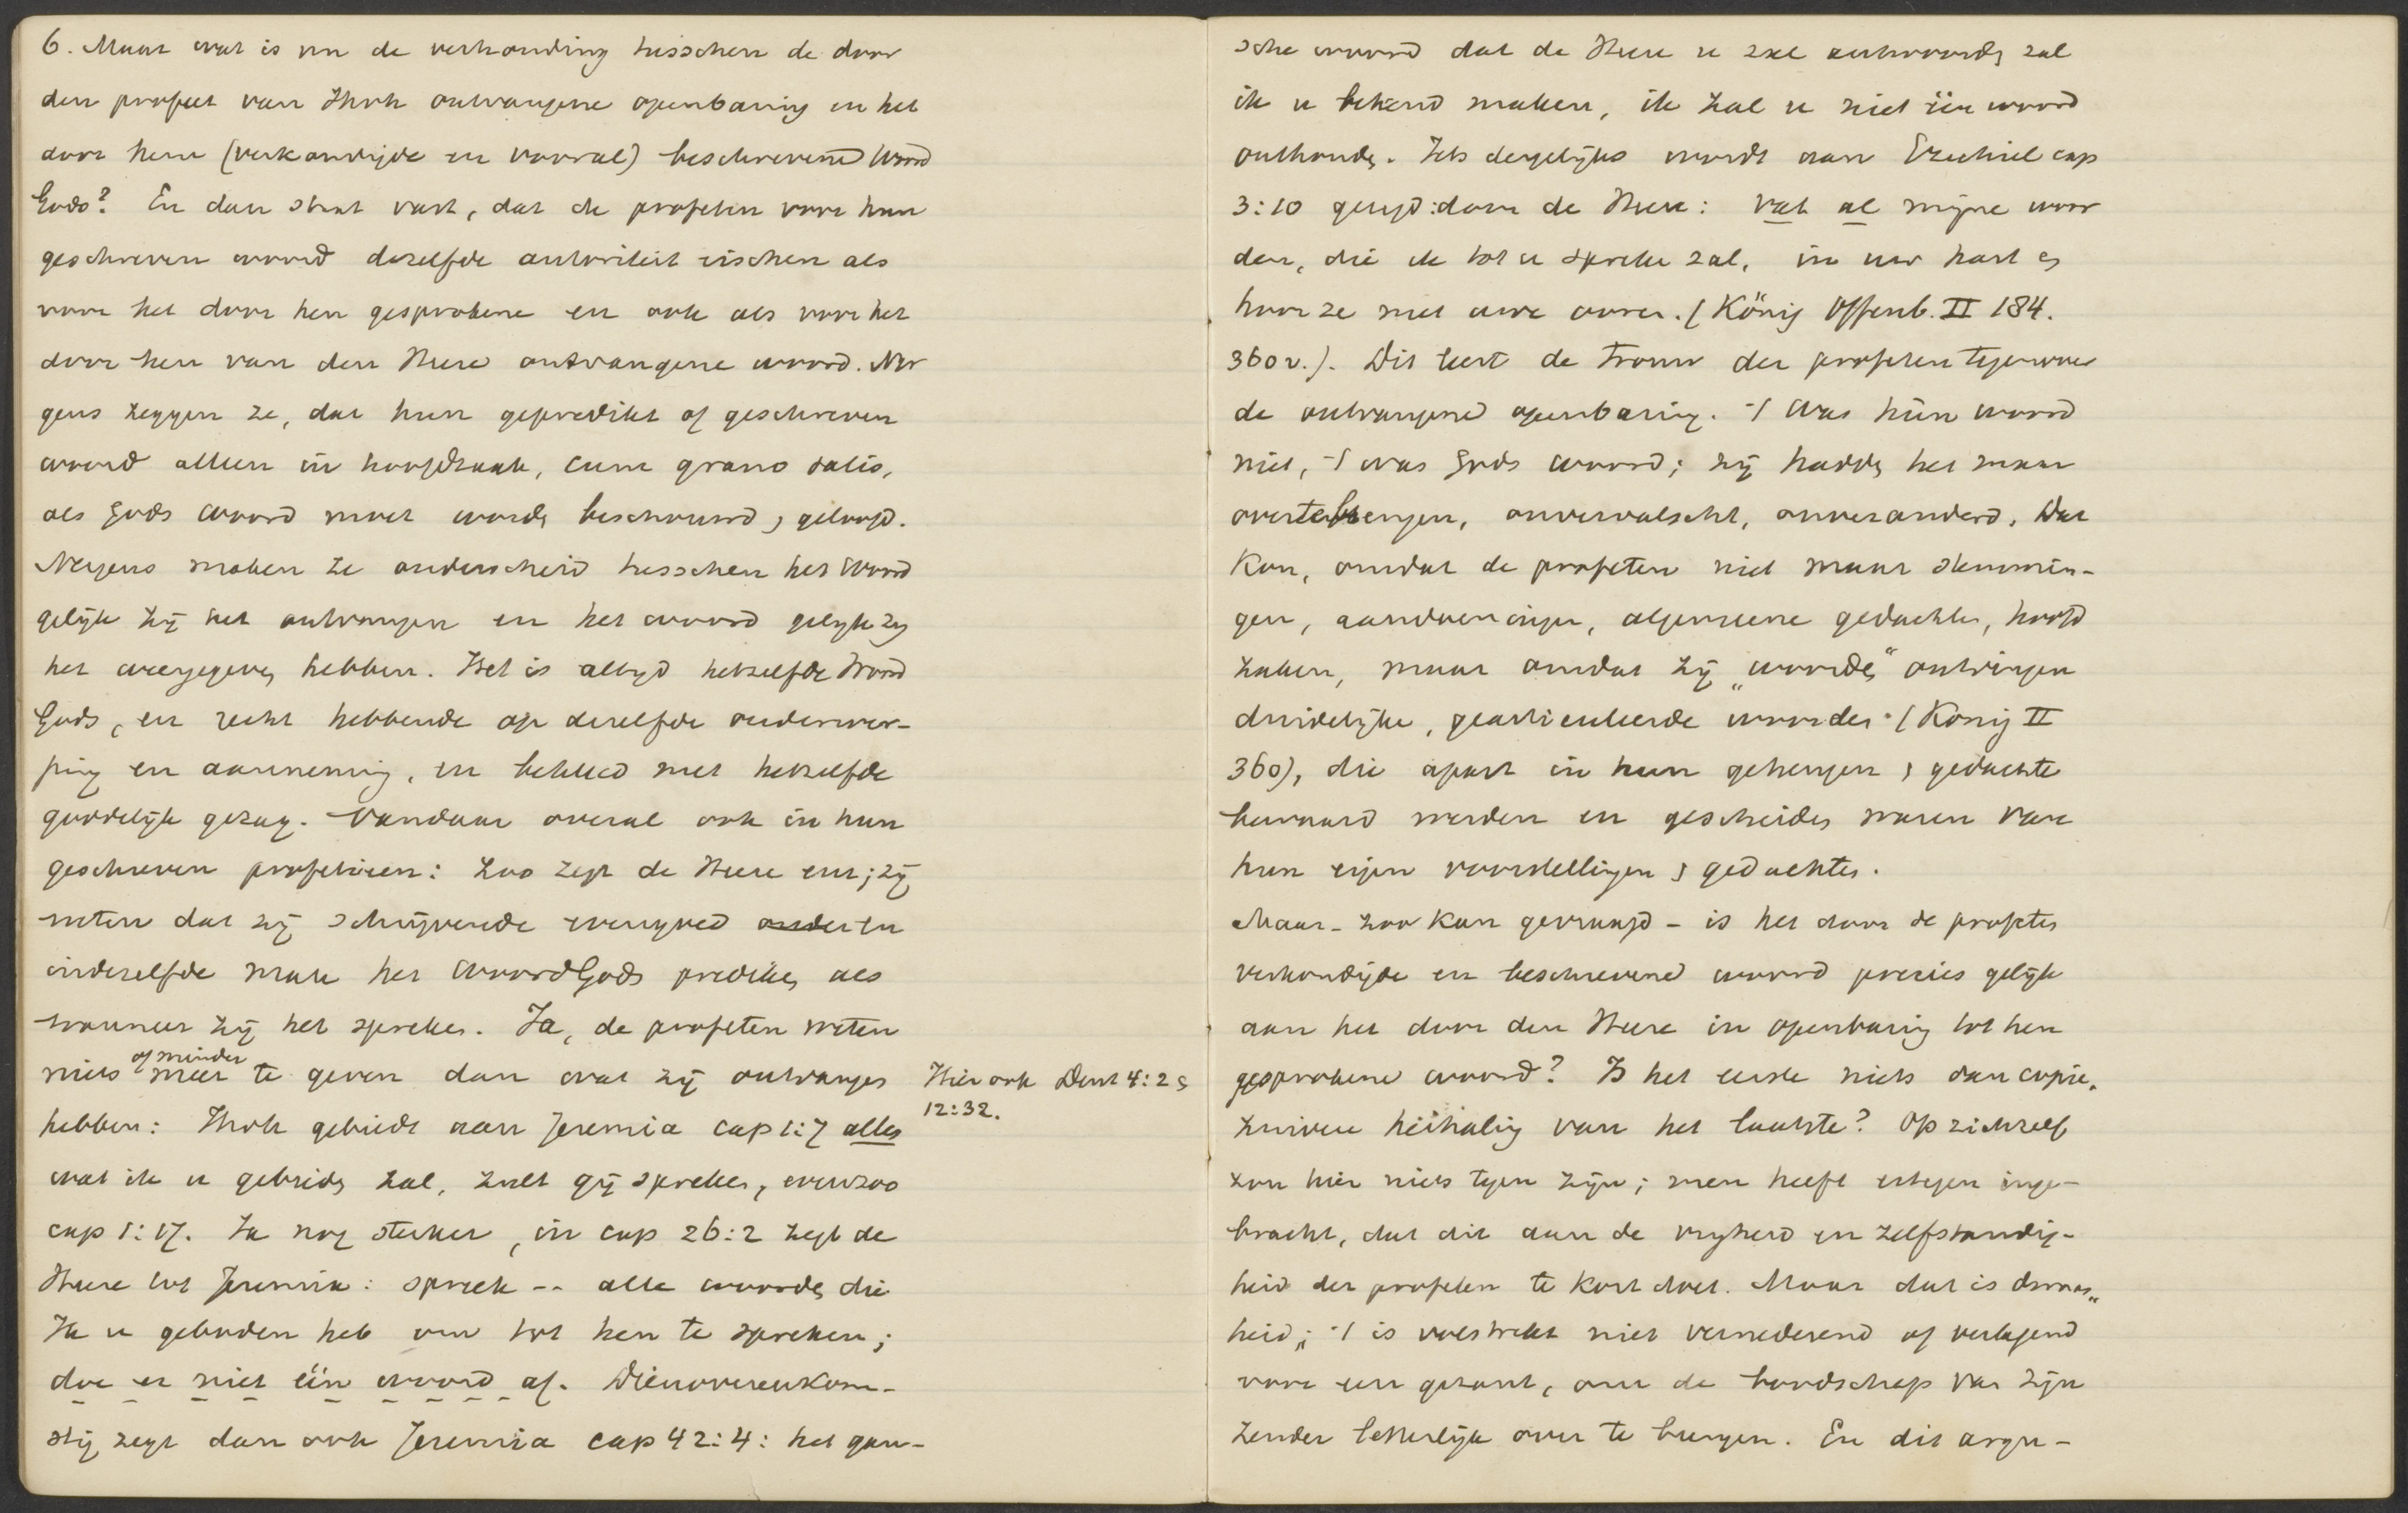 6. Maar wat is nu de verhouding tusschen de door
den profeet van Jhvh ontvangene openbaring en het
door hem (verkondigde en vooral) beschrevene Woord
Gods? En dan staat vast, dat de profeten voor hun
geschreven woord dezelfde autoriteit eischen als
voor het door hen gesprokene en ook als voor het
door hen van den Heere ontvangene woord. Ner
gens zeggen ze, dat hun gepredikt of geschreven
woord alleen in hoofdzaak, cum grano salis,
als Gods woord moet worden beschouwd, geloofd.
Nergens maken ze onderscheid tusschen het Woord
gelijk zij het ontvangen en het woord gelijk zij
het weergegeven hebben. Het is altijd hetzelfde Woord
Gods, en recht hebbende op dezelfde onderwer-
ping en aanneming, en bekleed met hetzelfde
goddelijk gezag. Vandaar overal ook in hun
geschreven profetieen: zoo zegt de Heere enz; zij
weten dat zij schrijvende evengoed en
in dezelfde mate het Woord Gods prediken als
wanneer zij het spreken. Ja, de profeten weten
of minder
niets meer te geven dan wat zij ontvangen
hebben: Jhvh gebiedt aan Jeremia cap 1:7 alles
wat ik u gebieden zal, zult gij spreken, evenzoo
cap 1:17. Ja nog sterker, in cap 26:2 zegt de
Heere tot Jeremia: spreek -- alle woorden die
Ik u geboden heb om tot hen te spreken;
doe er niet één woord af. Dienovereenkom-
stig zegt dan ook Jeremia cap 42:4: het gan-
Hier ook Deut 4:2 en
12:32.
sche woord dat de Heere u zal antwoorden zal
ik u bekend maken, ik zal u niet één woord
onthouden. Iets dergelijks wordt aan Ezechiel cap
3:10 gezegd: door de Heere: vat al mijne woor
den, die ik tot u spreken zal, in uw hart en
hoor ze met uwe ooren. (König Offenb. II 184.
360 v.). Dit leert de trouw der profeten tegenover
de ontvangene openbaring. 't Was hún woord
niet, 't was Gods woord; zij hadden het maar
overtebrengen, onvervalscht, onveranderd. Dat
kon, omdat de profeten niet maar stemmin-
gen, aandoeningen, algemeene gedachten, hoofd
zaken, maar omdat zij „woorden“ ontvingen
duidelijke, gearticuleerde woorden (König II
360), die apart in hun geheugen en gedachte
bewaard werden en gescheiden waren van
hun eigen voorstellingen en gedachten.
Maar - zoo kan gevraagd - is het door de profeten
verkondigde en beschrevene woord precies gelijk
aan het door den Heere in openbaring tot hen
gesprokene woord? Is het eerste niets dan copie,
zuivere herhaling van het laatste? Op zichzelf
zou hier niets tegen zijn; men heeft ertegen inge-
bracht, dat dit aan de vrijheid en zelfstandig-
heid der profeten te kort doet. Maar dat is dwaas„
heid; 't is volstrekt niet vernederend of verlagend
voor een gezant, om de boodschap van zijn
zender letterlijk over te brengen. En dit argu-